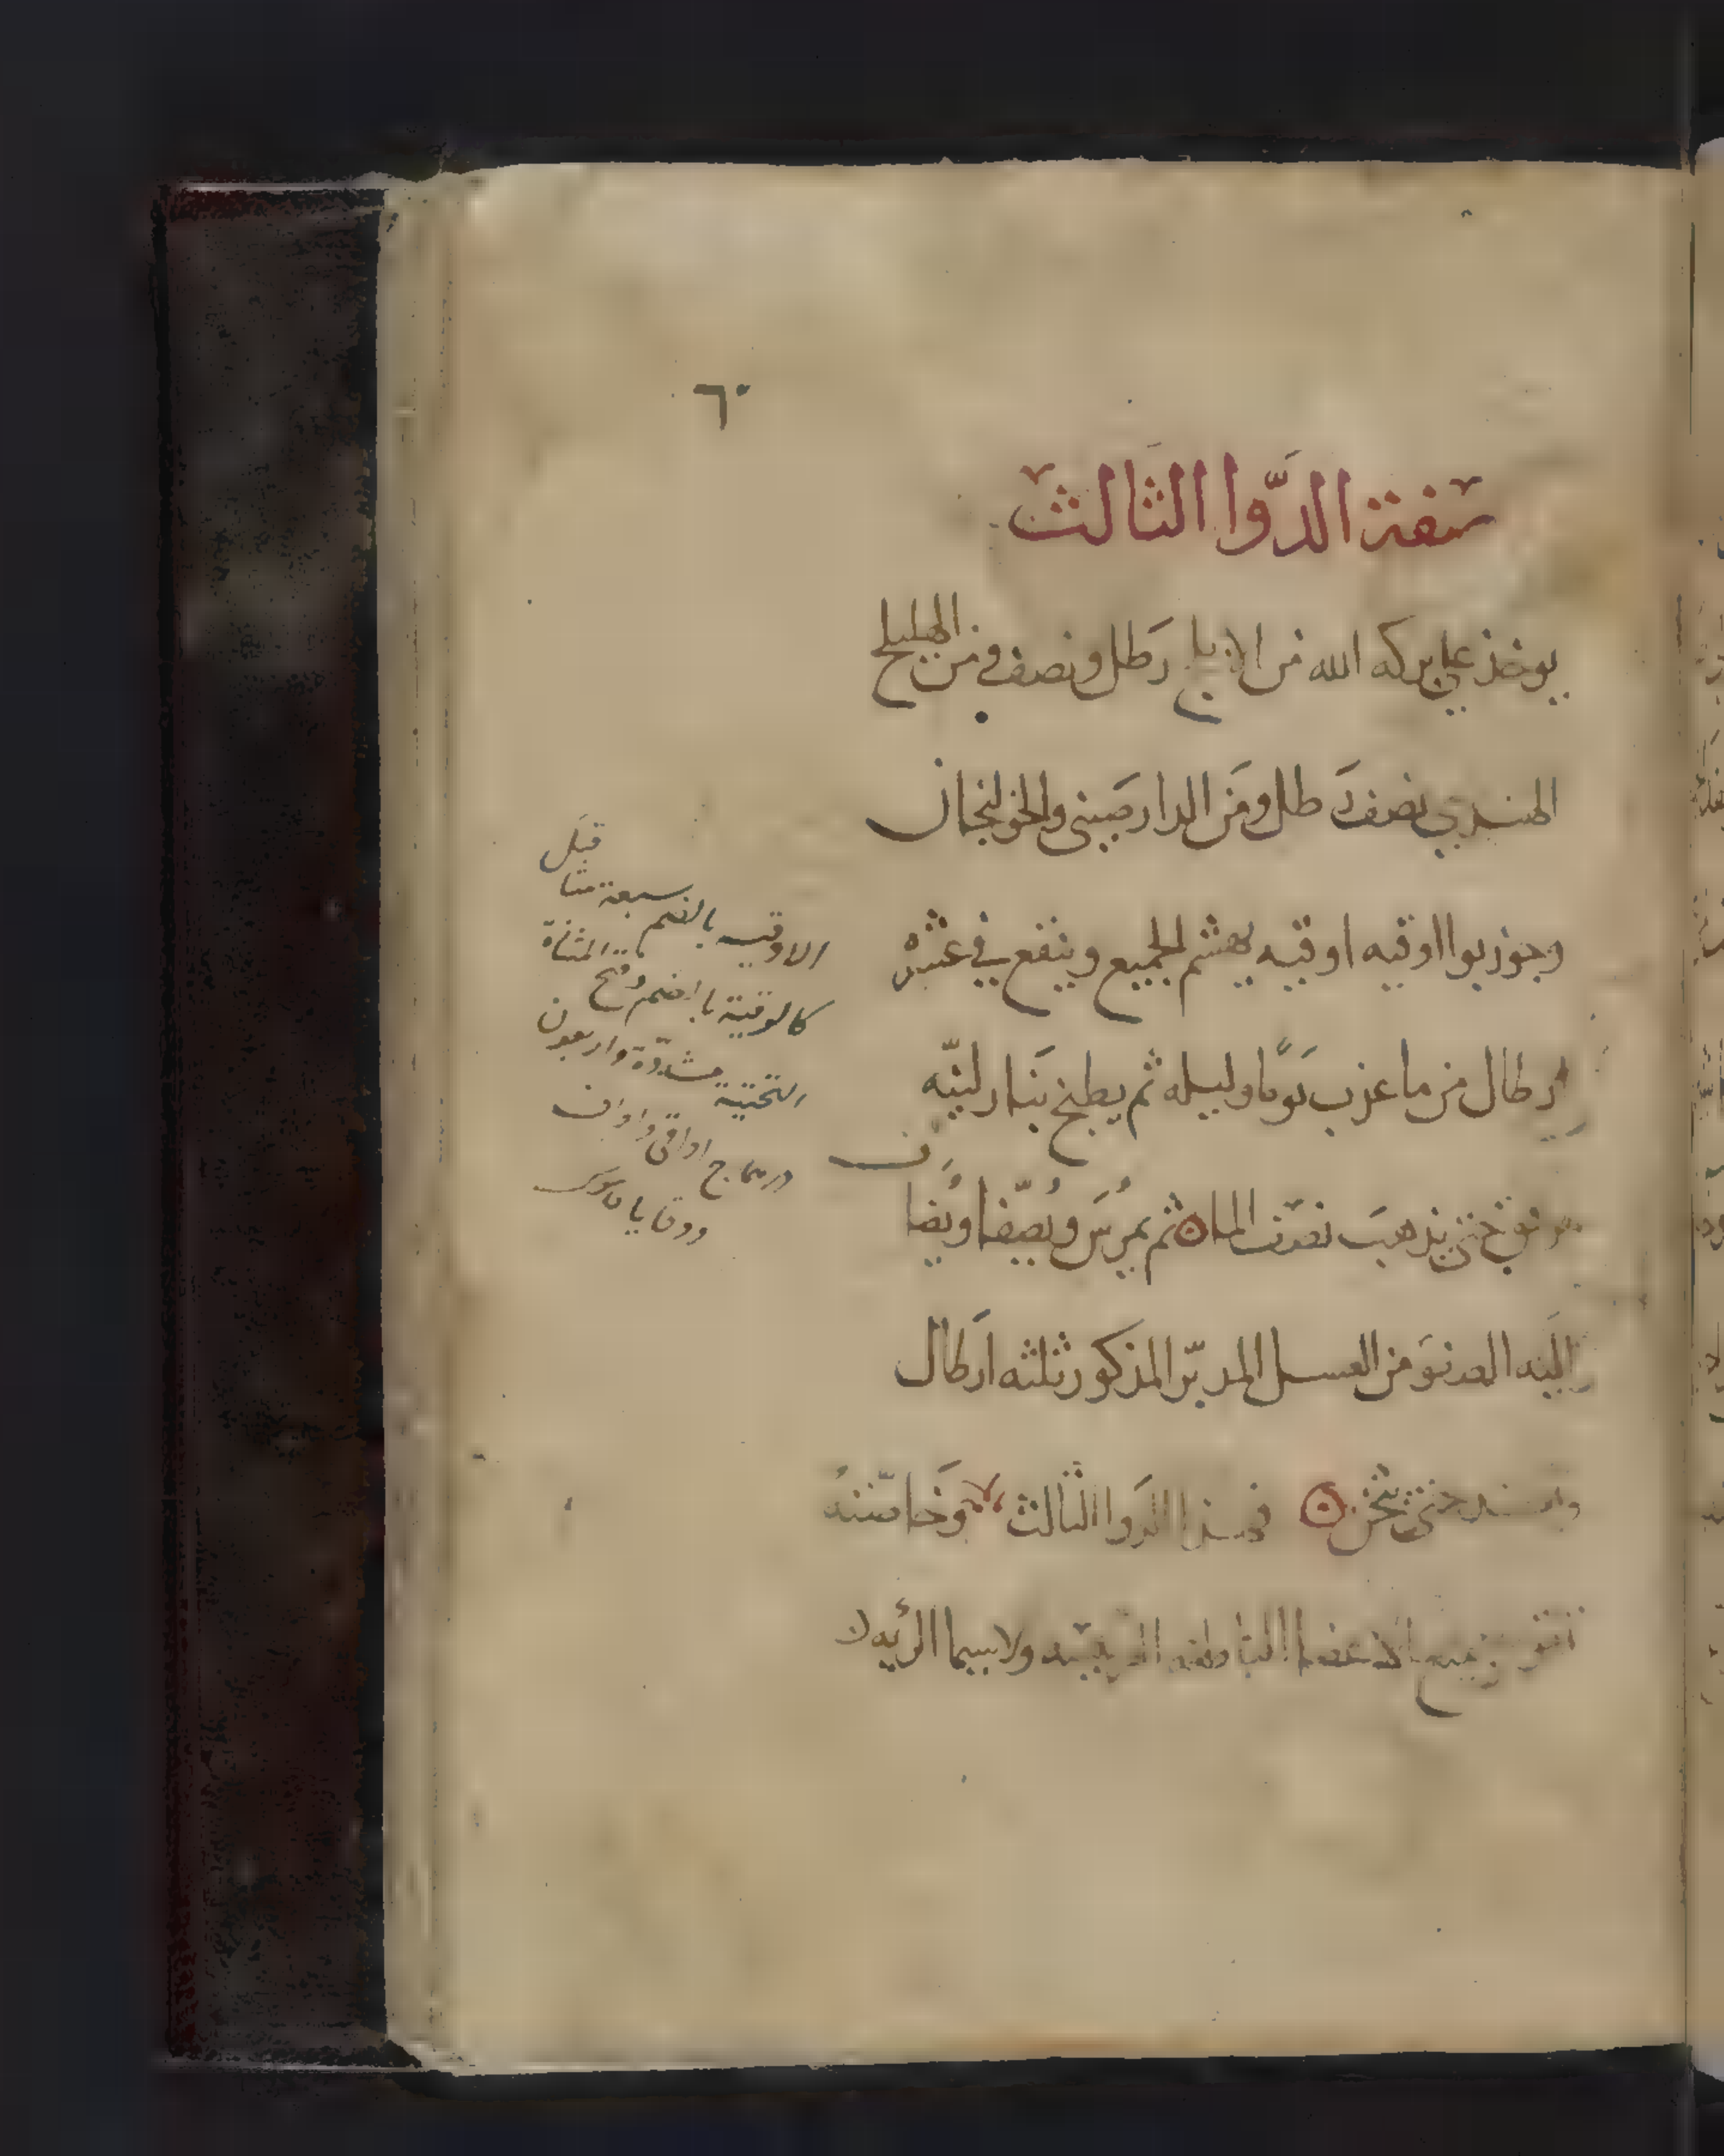 ٦٠
صفة الدَّوا الثالث
يوخذ علي بركه الله من رطل ونصف ومن الهليلج
الهندي نصف رَطل ومَن الدارصَيني والخولنجان
وجوزبوا اوقيه اوقيه يهشم الجميع وينقع في عشره
ارطال من ما عذب يَومًا وليله ثم يطبخ بنَار لينّه
حتي يذهبَ نصف الما ثم يمرُسَ ويُصَفّا ويُضاف
اليَه من العسل المدبّر المذكور ثلثه ارَطال
حتي يثخن فهذا الدوَا الثالث وَخاصّتهُ
الاعضا الباطنه ولا سيما الرئيه لا
الاوقيه بالضم سبعة مثاقيل
كالوقية بالضم وفتح المثناة
التحتية مشدّدة واربعون
درهما ج اواقي واواق
ووقايا قاموس